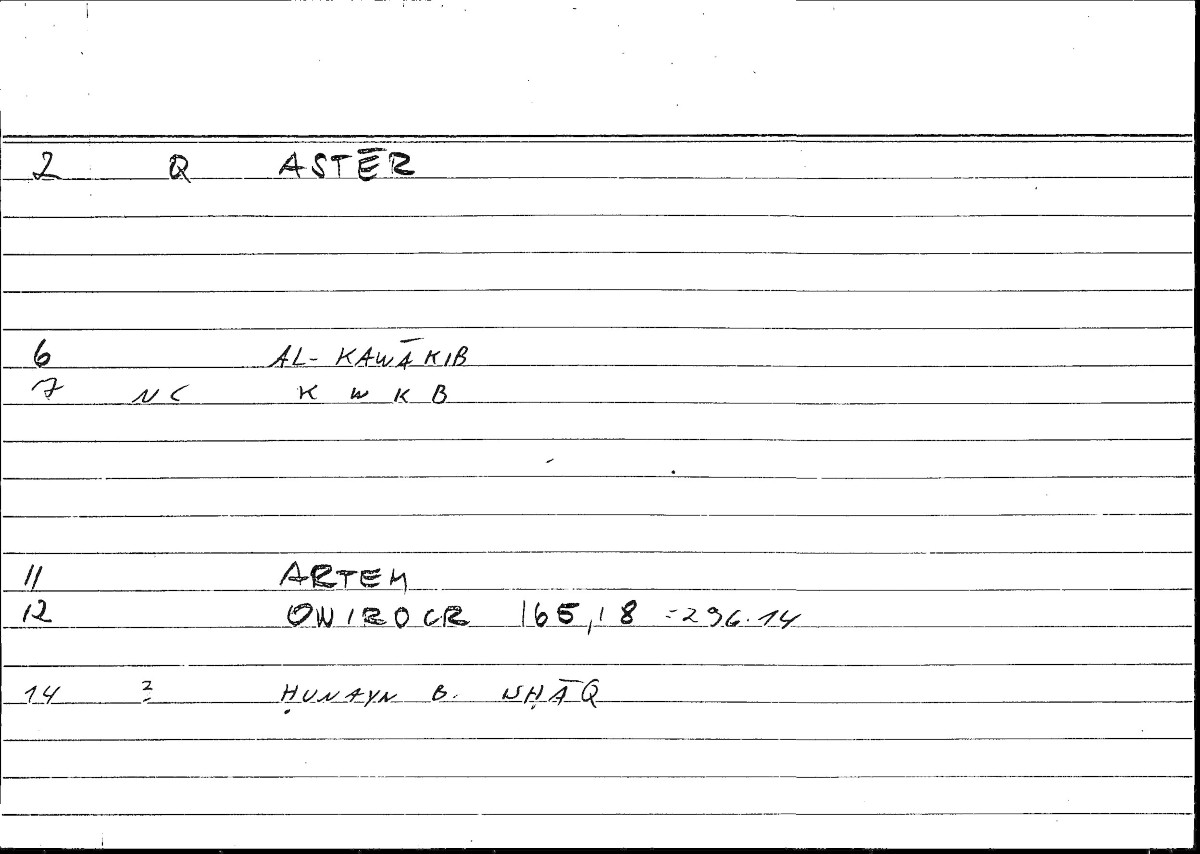 2 Q ASTĒR
6 AL-KAWĀKIB
7 NC K W K B
11 ARTEM
12 ONIROCR 165,18 =296.14
14 2 ḤUNAYN B. ISḤĀQ